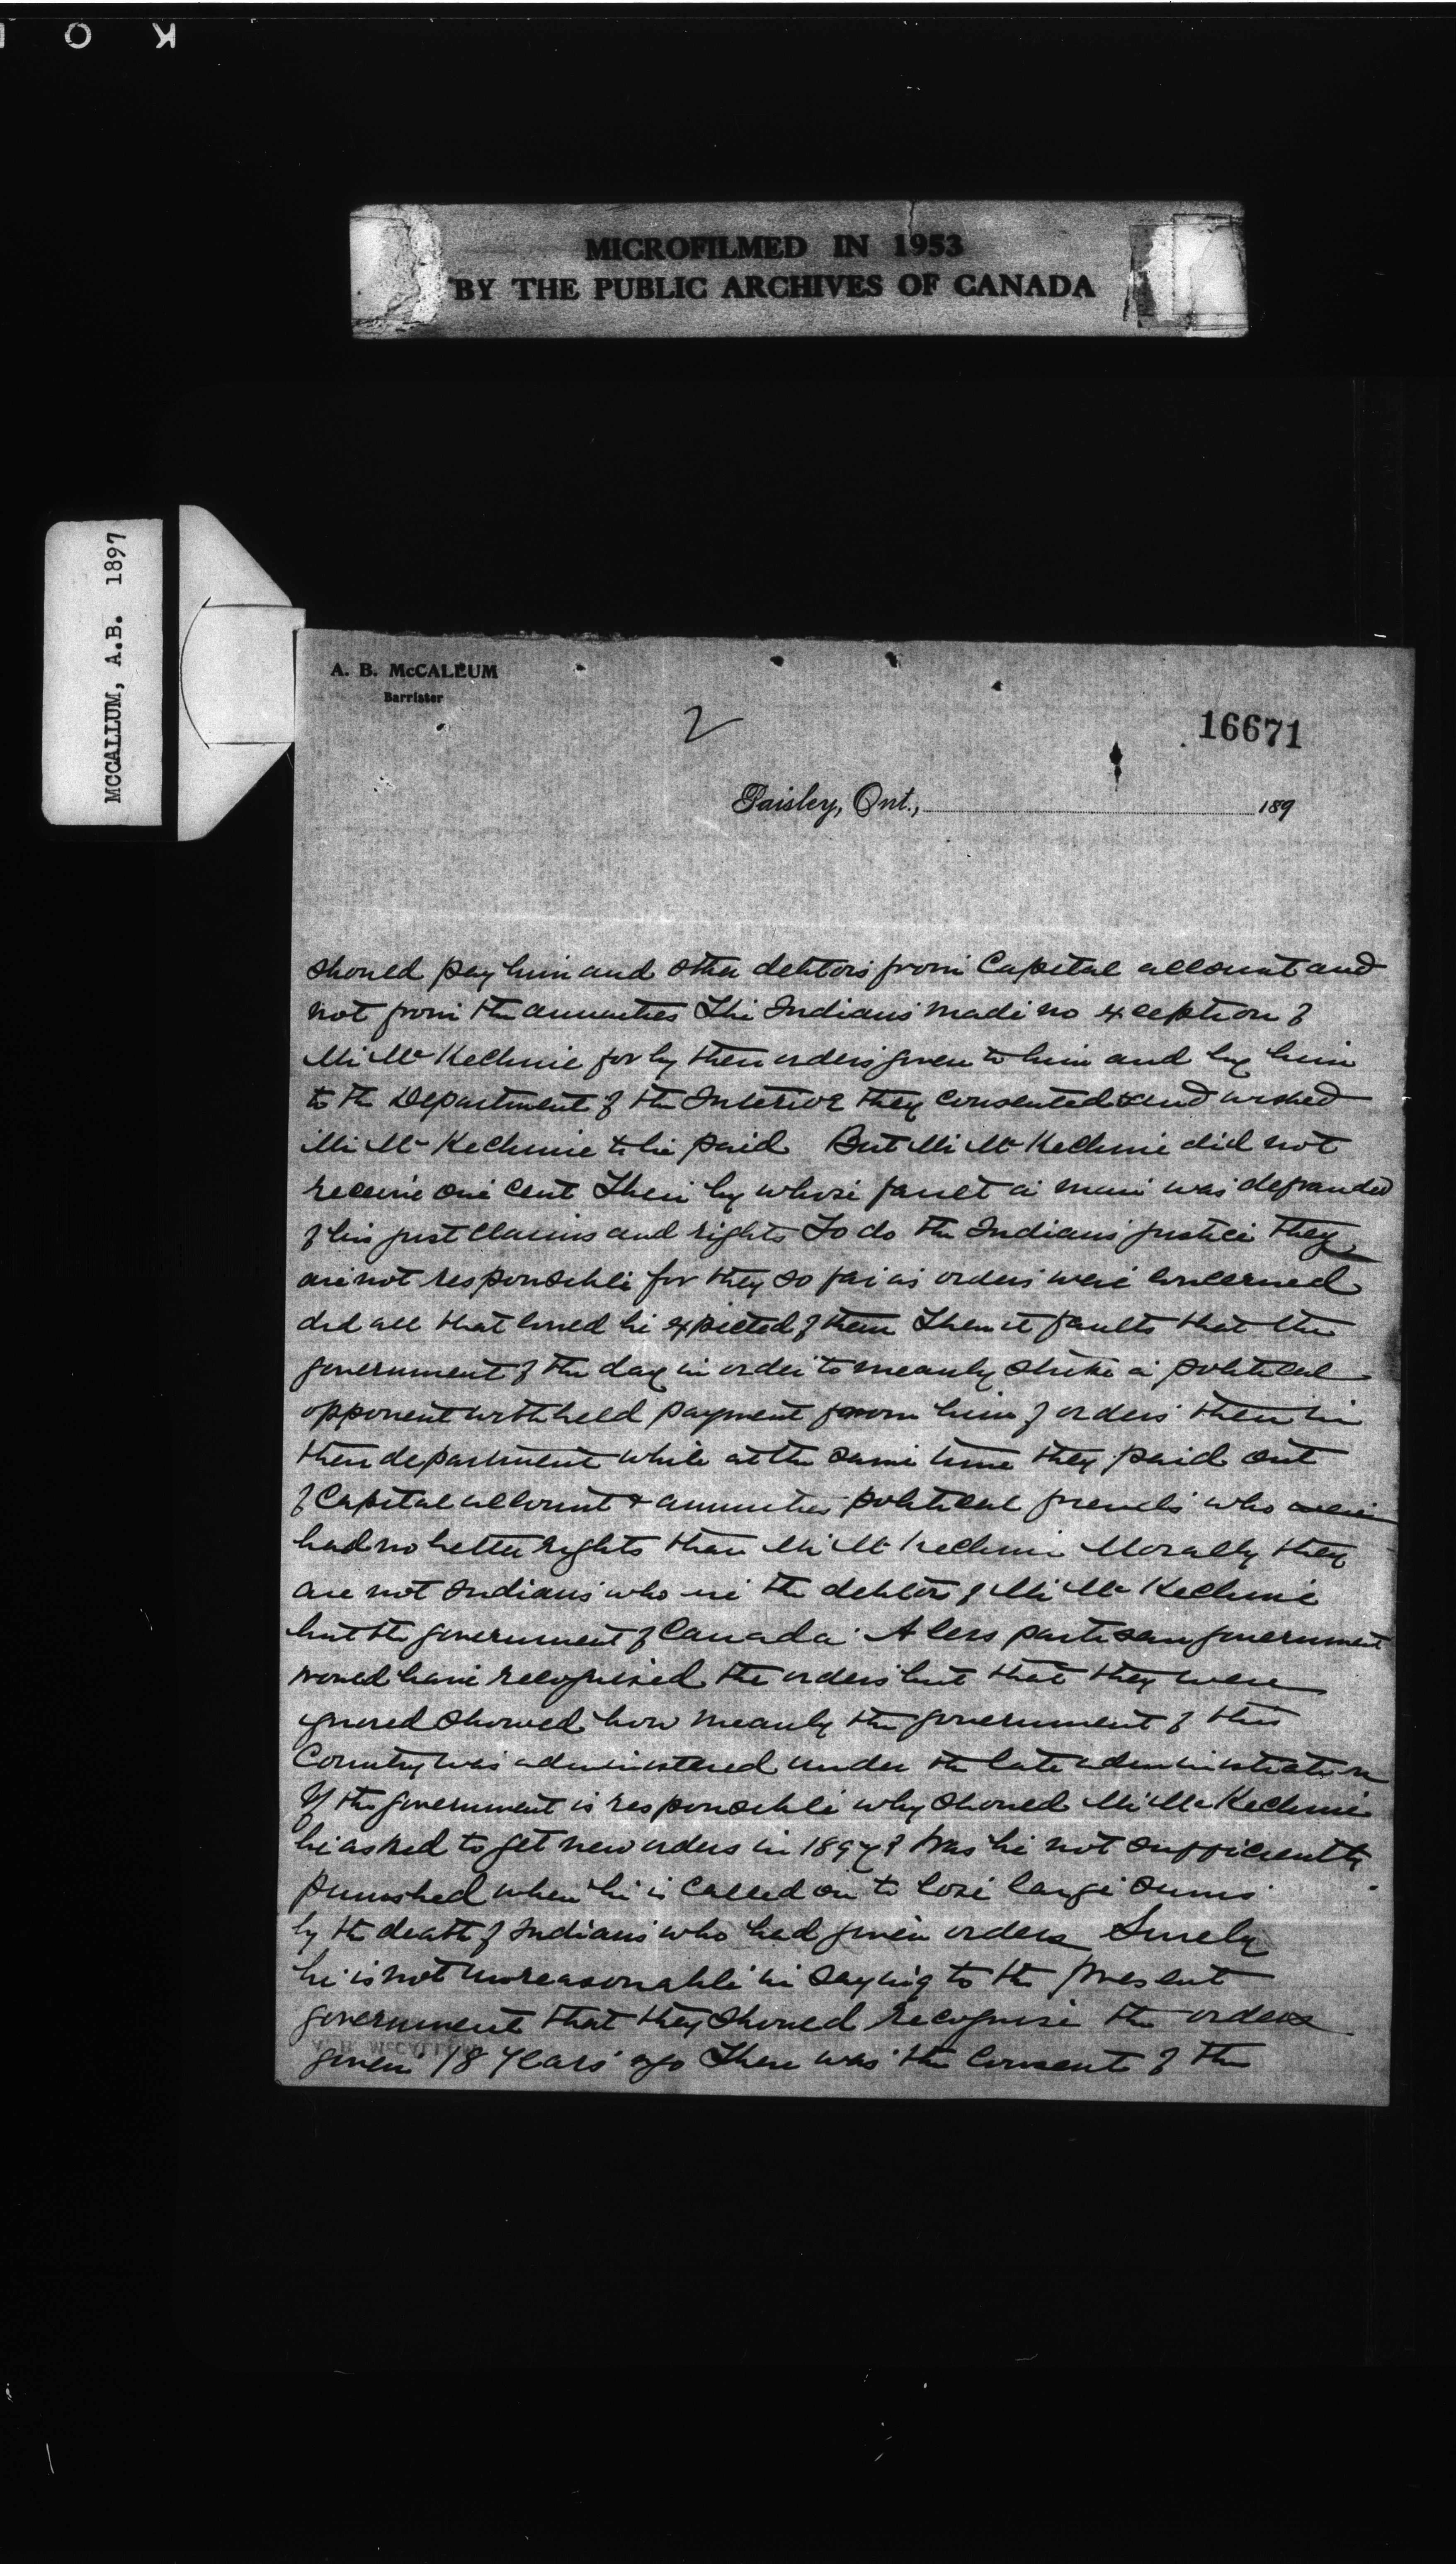 K O
MICROFILMED IN 1953
BY THE PUBLIC ARCHIVES OF CANADA
MCCALLUM, A.B. 1897
A. B. McCALLUM
Barrister
2
16671
Paisley, Ont., 189
should pay him and other debtors from Capital account and
not from the annuities The Indians made no exception of
Mr McKechnie for by their orders given to him and by him
to the Department of the Interior they consented and wished
Mr McKechnie to be paid But Mr McKechnie did not
receive one cent Then by whose fault a man was defrauded
of his just claims and rights To do the Indians justice they
are not responsible for they so far as orders were concerned
did all that could be expected of them Then it faults that the
government of the day in order to meanly strike a political
opponent withheld payment from him of orders then in
their department while at the same time they paid out
of Capital account & annuities political friends who
had no better rights than Mr McKechnie Morally they
are not Indians who are the debtors of Mr McKechnie
but the government of Canada. A less partisan government
would have recognised the orders but that they were
ignored showed how meanly the government of this
Country was administered under the late administration
If the government is responsible why should Mr McKechnie
be asked to get new orders in 1897? Was he not sufficiently
punished when he is called on to lose large sums
by the death of Indians who had given orders Surely
he is not unreasonable in saying to the present
government that they should recognise the orders
given 18 years ago There was the consent of the